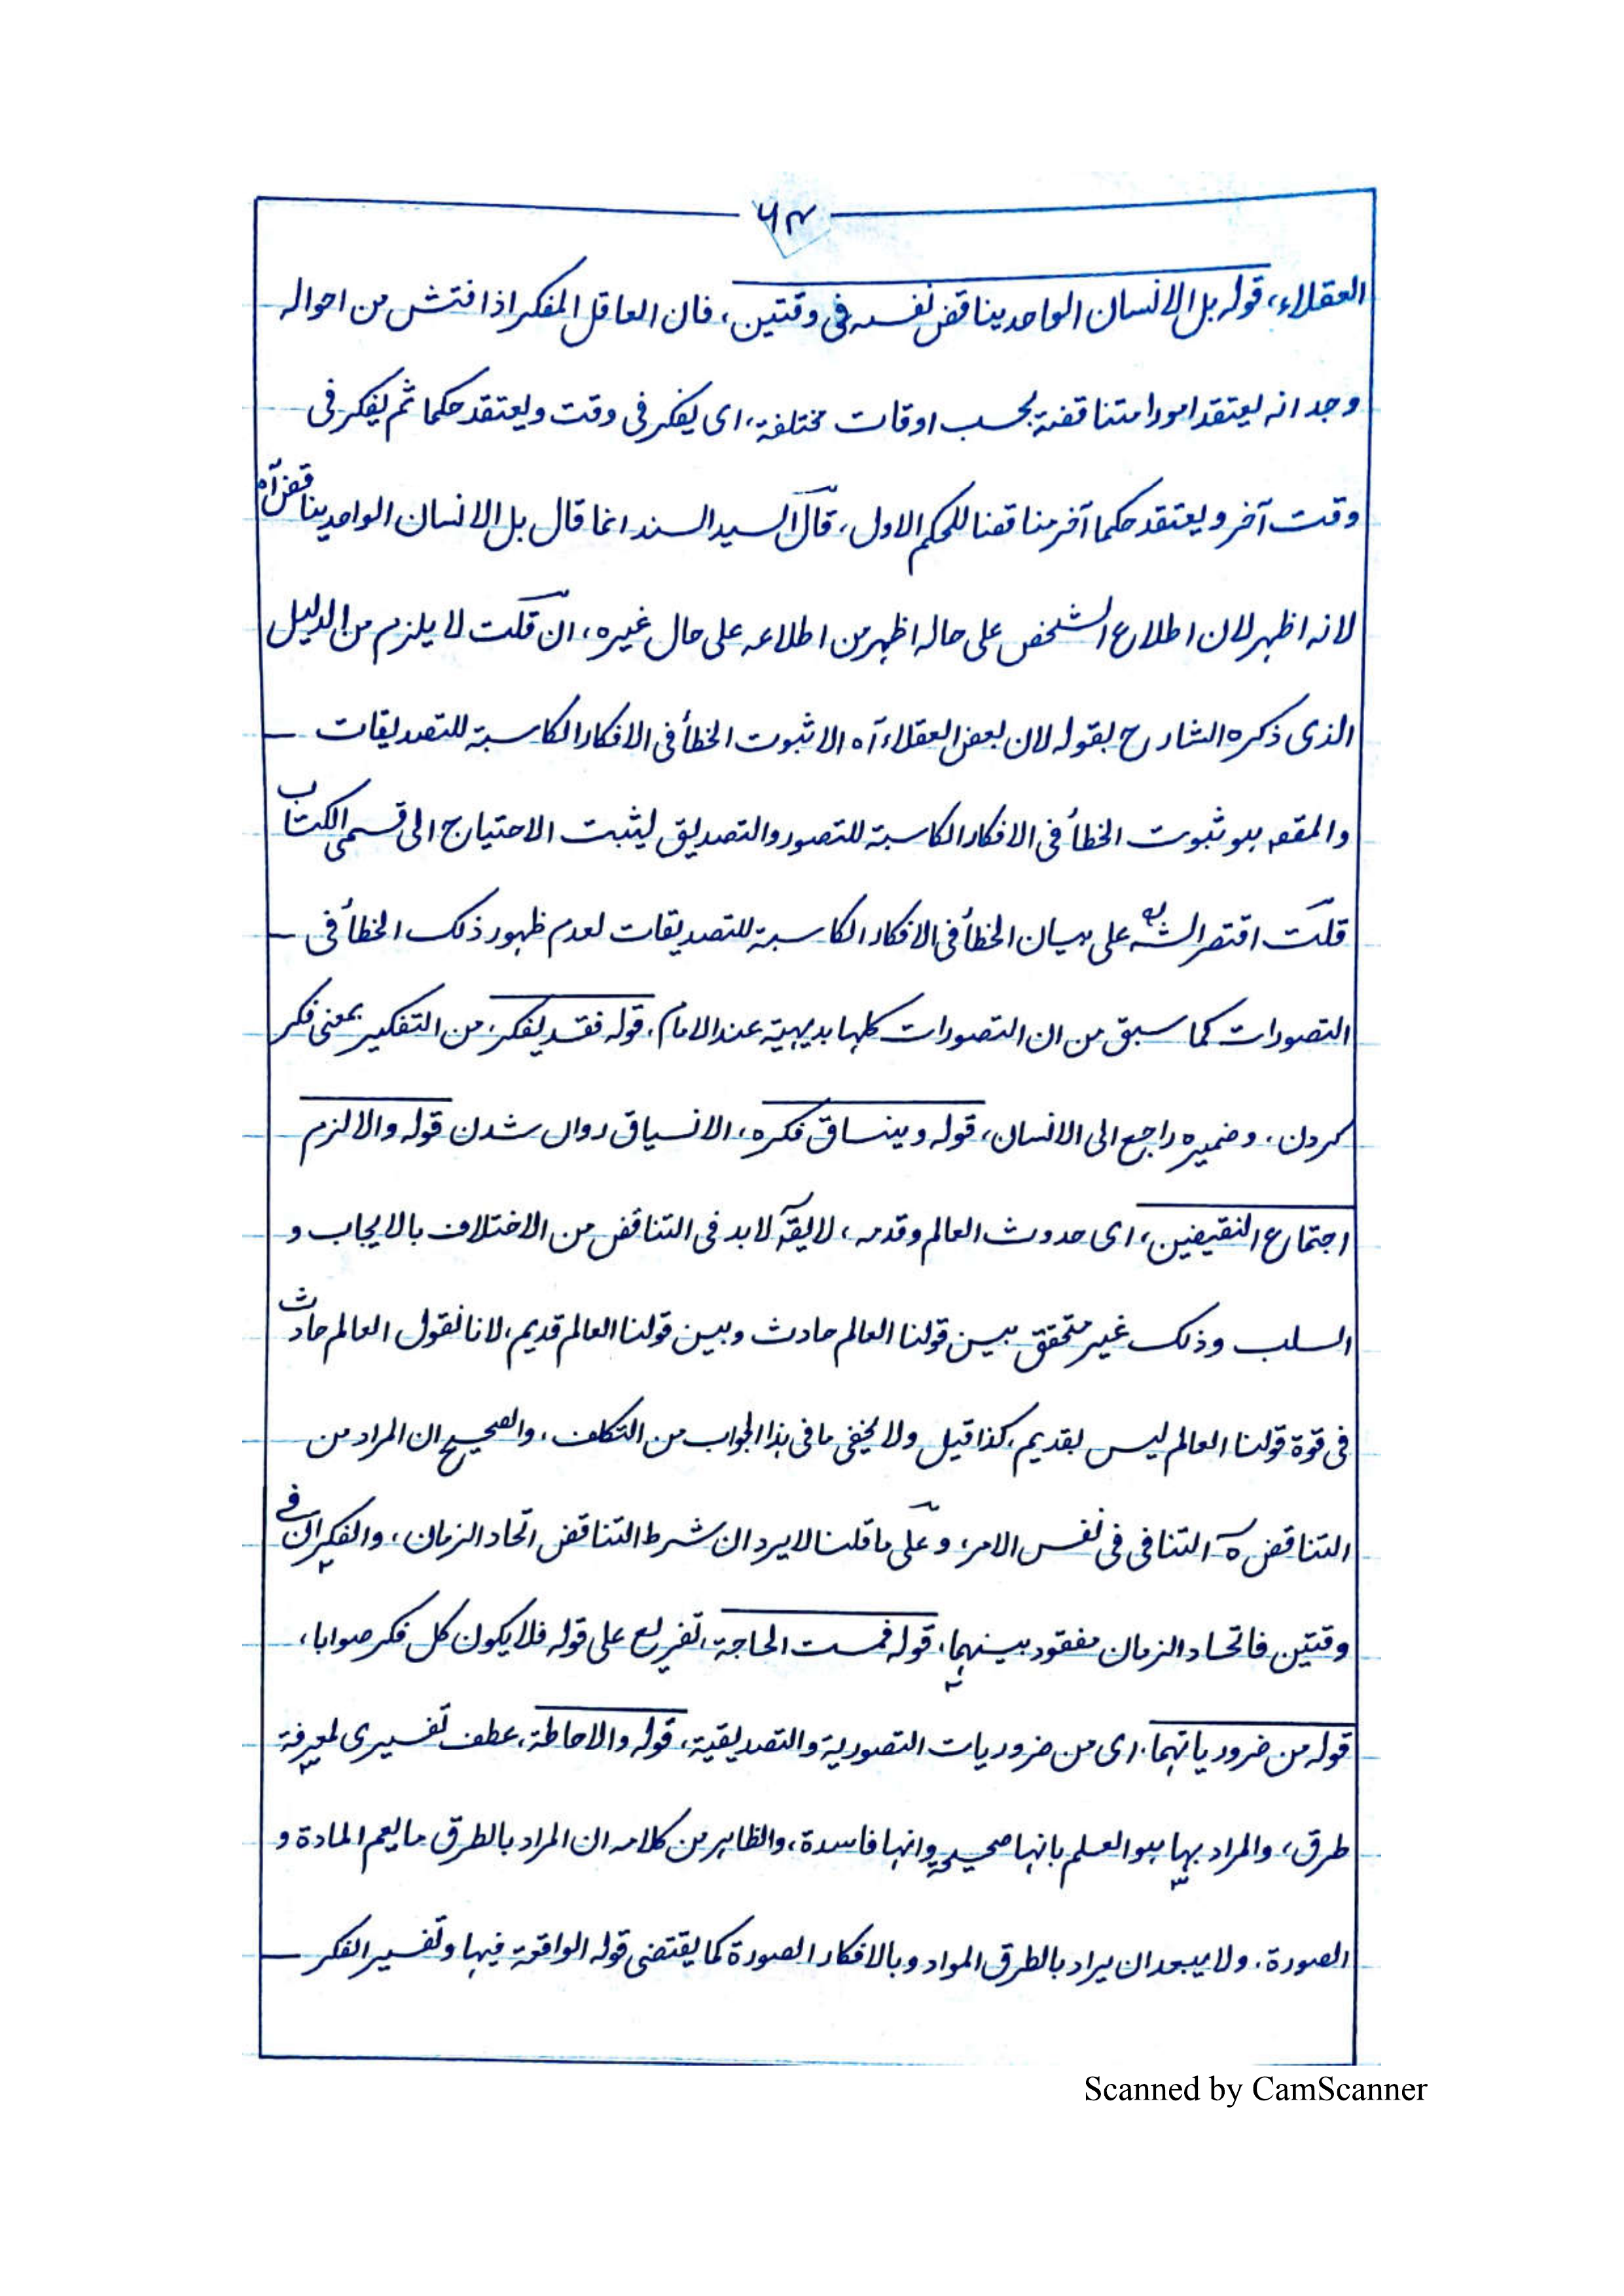 ٦٣
العقلاء، قوله بل الانسان الواحد يناقض نفسه فى وقتين، فان العاقل المفكر اذا فتش من احواله
وجد انه يعتقد امورا متناقضة بحسب اوقات مختلفة، اى يفكر فى وقت ويعتقد حكما ثم يفكر فى
وقت آخر ويعتقد حكما آخر مناقضا للحكم الاول، قال السيد السند انما قال بل الانسان الواحد يناقض آه
لانه اظهر لان اطلاع الشخص على حاله اظهر من اطلاعه على حال غيره، ان قلت لا يلزم من الدليل
الذى ذكره الشارح بقوله لان بعض العقلاء آه الا ثبوت الخطأ فى الافكار الكاسبة للتصديقات
والمقصـ هو ثبوت الخطأ فى الافكار الكاسبة للتصور والتصديق ليثبت الاحتياج الى قسمى الكتاب
قلت اقتصر الشه على بيان الخطأ فى الافكار الكاسبة للتصديقات لعدم ظهور ذلك الخطأ فى
التصورات كما سبق من ان التصورات كلها بديهية عند الامام، قوله فقد يفكر، من التفكير بمعنى فكر
كردن، وضميره راجع الى الانسان، قوله وينساق فكره، الانسياق روان شدن قوله والا لزم
اجتماع النقيضين، اى حدوث العالم وقدمه، لا يقـ لابد فى التناقض من الاختلاف بالايجاب و
السلب وذلك غير متحقق بين قولنا العالم حادث وبين قولنا العالم قديم، لانا نقول العالم حادث
فى قوة قولنا العالم ليس بقديم، كذا قيل ولا يخفى ما فى هذا الجواب من التكلف، والصحيح ان المراد من
التناقض ه التنافى فى نفس الامر، وعلى ما قلنا لا يرد ان شرط التناقض اتحاد الزمان، والفكران فى
وقتين فاتحاد الزمان مفقود بينهما، قوله فمست الحاجة، تفريع على قوله فلا يكون كل فكر صوابا،
قوله من ضرورياتهما. اى من ضروريات التصورية والتصديقية، قوله والاحاطة، عطف تفسيرى لمعرفة
طرق، والمراد بها هو العلم بانها صحيحة وانها فاسدة، والظاهر من كلامه ان المراد بالطرق ما يعم المادة و
الصورة. ولا يبعد ان يراد بالطرق المواد وبالافكار الصورة كما يقتضى قوله الواقعة فيها وتفسير الفكر
Scanned by CamScanner